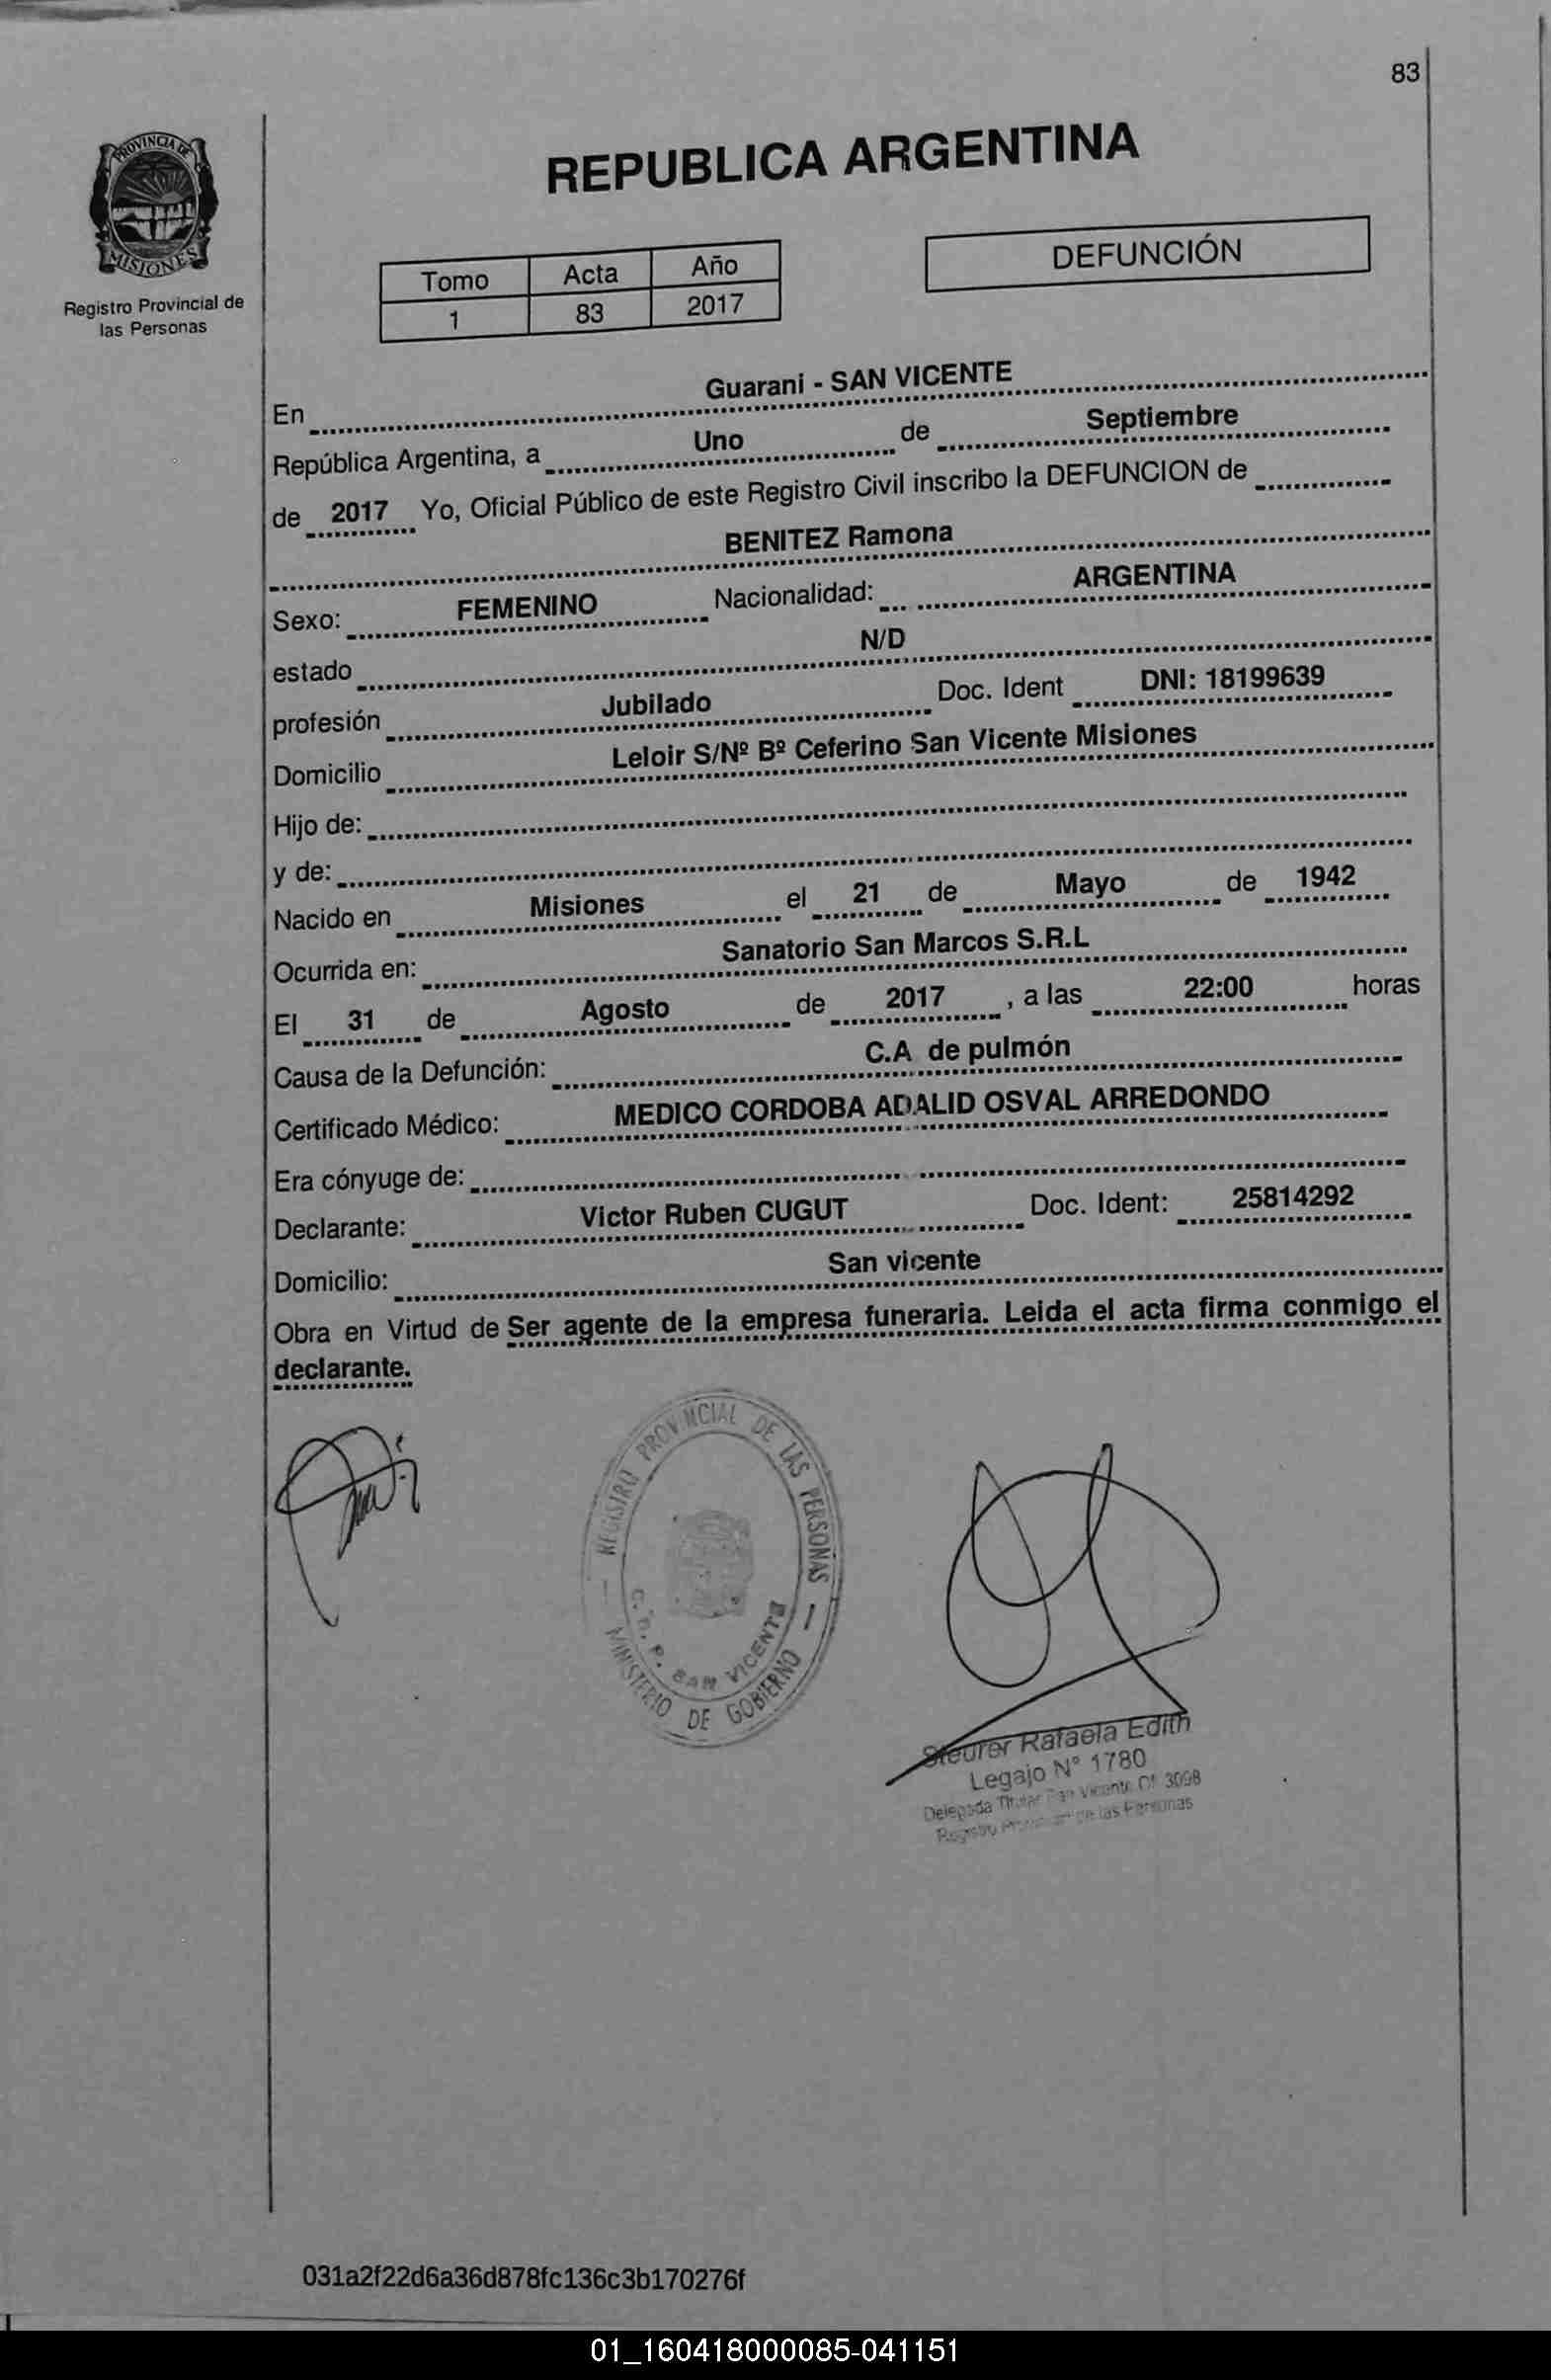 83
PROVINCIA DE
MISIONES
Registro Provincial de
las Personas
REPUBLICA ARGENTINA
Tomo Acta Año
1 83 2017
DEFUNCIÓN
En Guarani - SAN VICENTE
República Argentina, a Uno de Septiembre
de 2017 Yo, Oficial Público de este Registro Civil inscribo la DEFUNCION de
BENITEZ Ramona
Sexo: FEMENINO Nacionalidad: ARGENTINA
estado N/D
profesión Jubilado Doc. Ident DNI: 18199639
Domicilio Leloir S/Nº Bº Ceferino San Vicente Misiones
Hijo de:
y de:
Nacido en Misiones el 21 de Mayo de 1942
Ocurrida en: Sanatorio San Marcos S.R.L
El 31 de Agosto de 2017 , a las 22:00 horas
Causa de la Defunción: C.A de pulmón
Certificado Médico: MEDICO CORDOBA ADALID OSVAL ARREDONDO
Era cónyuge de:
Declarante: Victor Ruben CUGUT Doc. Ident: 25814292
Domicilio: San vicente
Obra en Virtud de Ser agente de la empresa funeraria. Leida el acta firma conmigo el
declarante.
REGISTRO PROVINCIAL DE LAS PERSONAS
SAN VICENTE
MINISTERIO DE GOBIERNO
Steurer Rafaela Edith
Legajo N° 1780
Delegada Titular San Vicente Of. 3098
Registro Provincial de las Personas
031a2f22d6a36d878fc136c3b170276f
01_160418000085-041151